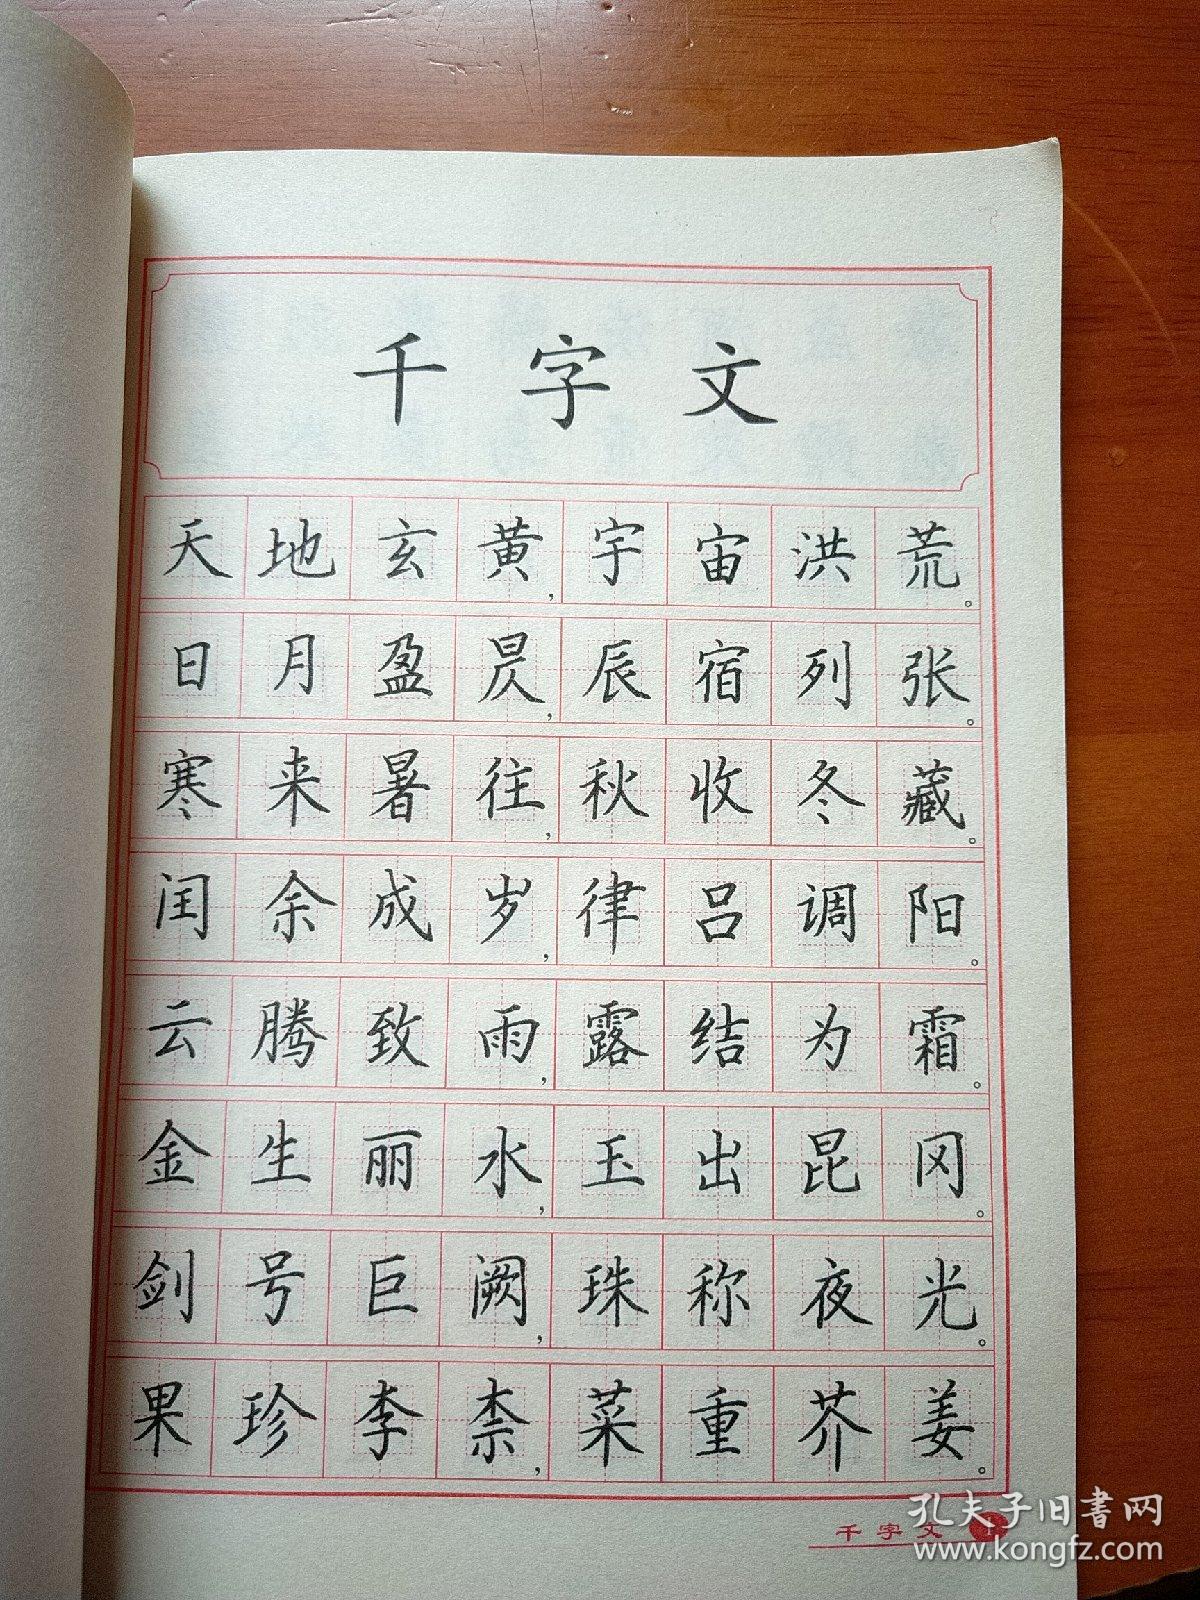 千字文
天地玄黄,宇宙洪荒。
日月盈昃,辰宿列张。
寒来暑往,秋收冬藏。
闰余成岁,律吕调阳。
云腾致雨,露结为霜。
金生丽水,玉出昆冈。
剑号巨阙,珠称夜光。
果珍李柰,菜重芥姜。
千字文 1
孔夫子旧书网
www.kongfz.com